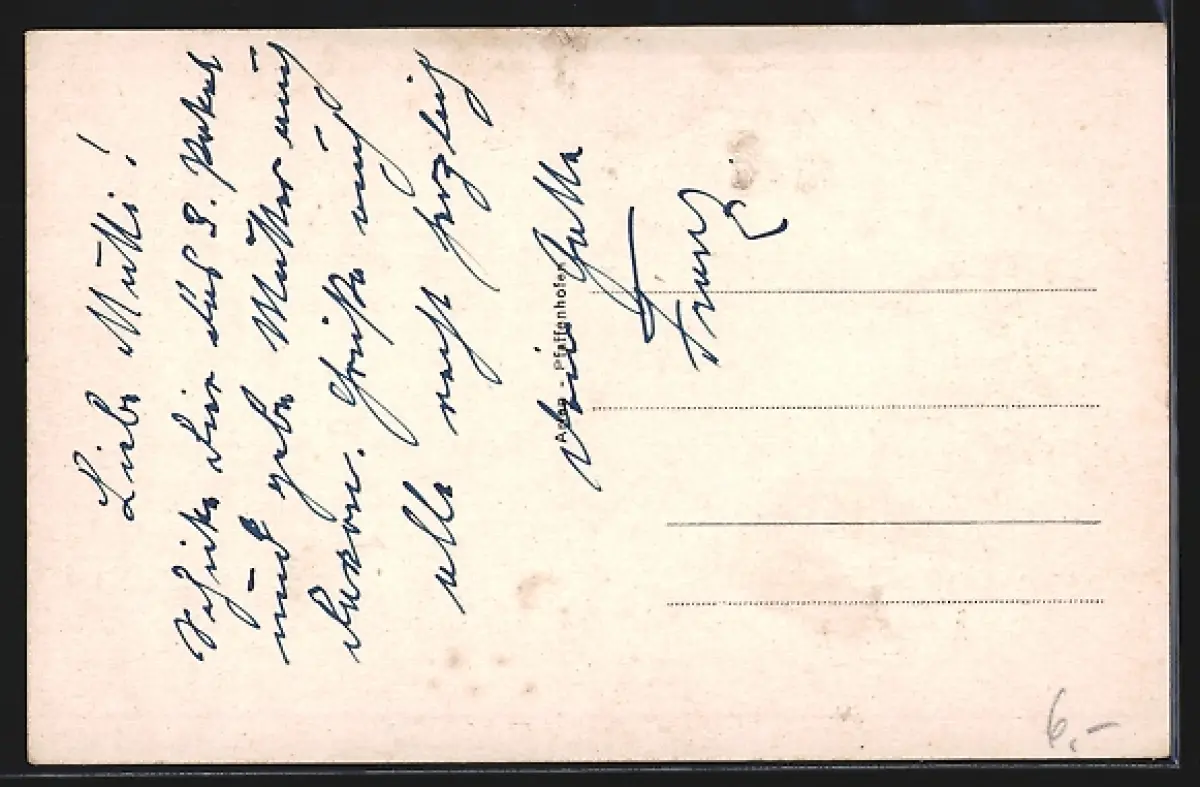 Liebe Mutti!
Schike dir das 8. Paket
und gebe Mutter auch
davon. Grüße euch
alle recht herzlich
dein Gatte
Franz
Adag - Pfaffenhofen
6,-